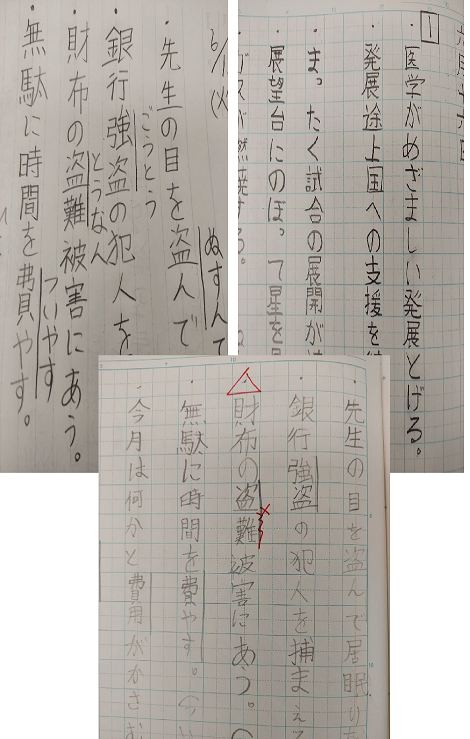 6/1(火)
・先生の目を盗んで
ぬすんで
・銀行強盗の犯人を
ごうとう
・財布の盗難被害にあう。
とうなん
・無駄に時間を費やす。
ついやす
1
・医学がめざましい発展とげる。
・発展途上国への支援を
・まったく試合の展開が
・展望台にのぼって星を見
先生の目を盗んで居眠り
・銀行強盗の犯人を捕まえ
・財布の盗難被害にあう。
・無駄に時間を費やす。
・今月は何かと費用がかさむ